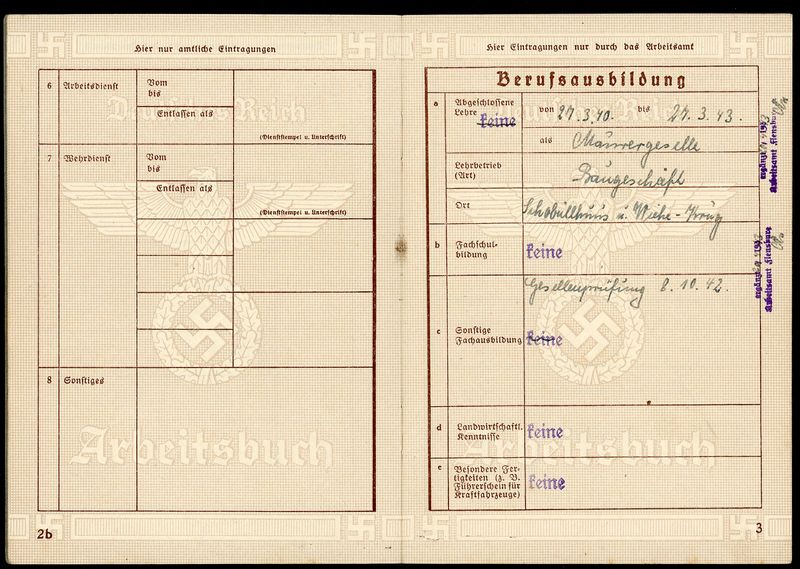 Hier nur amtliche Eintragungen
6 Arbeitsdienst
Vom
bis
Entlassen als
(Dienststempel u. Unterschrift)
7 Wehrdienst
Vom
bis
Entlassen als
(Dienststempel u. Unterschrift)
8 Sonstiges
Deutsches Reich
Arbeitsbuch
2b
Hier Eintragungen nur durch das Arbeitsamt
Berufsausbildung
a Abgeschlossene
Lehre
keine
von 27.3.40. bis 27.3.43.
als Maurergeselle
Lehrbetrieb
(Art)
Baugeschäft
Ort
b Fachschul-
bildung
keine
Gesellenprüfung 8.10.42.
c Sonstige
Fachausbildung
keine
d Landwirtschaftl.
Kenntnisse
keine
e Besondere Fer-
tigkeiten (z. B.
Führerschein für
Kraftfahrzeuge)
keine
Arbeitsamt Flensburg
Arbeitsamt Flensburg
Deutsches Reich
Arbeitsbuch
3